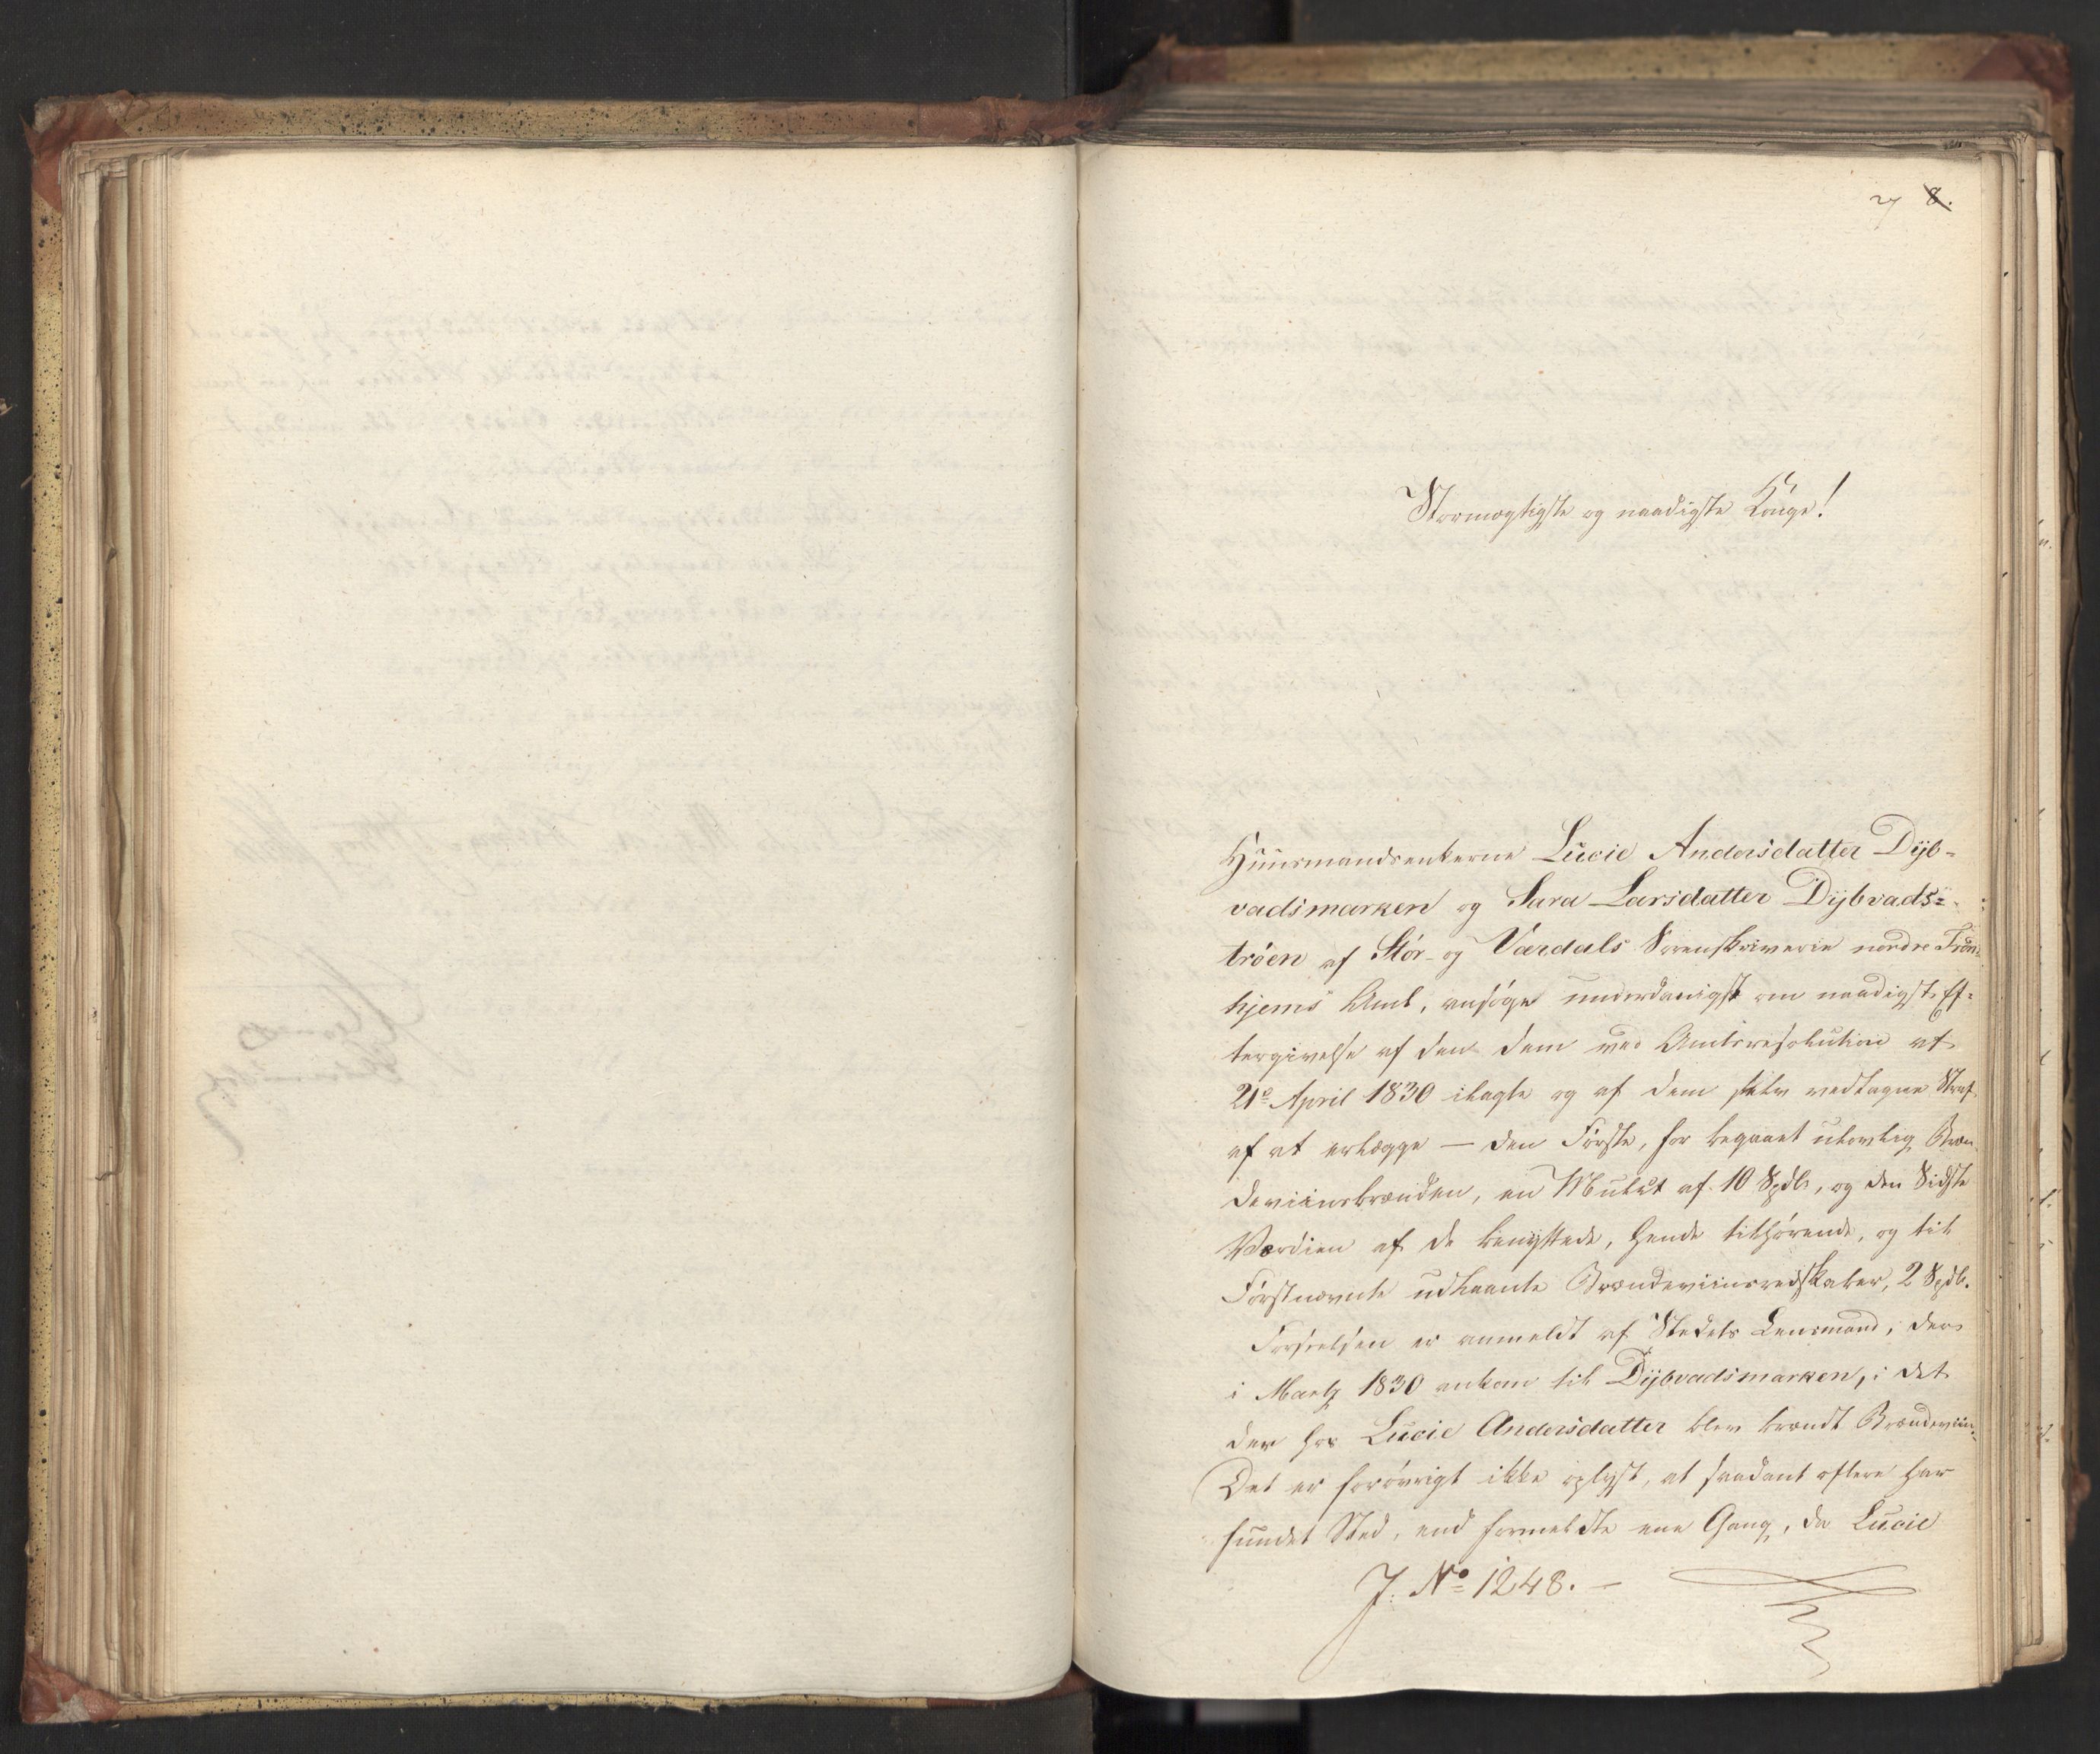 27 8.
Stormægtigste og naadigste Konge!
Huusmandsenkerne Lucie Andersdatter Dÿb-
vadsmarken og Sara Larsdatter Dÿbvads-
trøen af Stør- og Værdals Sorenskriverie nordre Tron-
hjems Amt, ansøge underdanigst om naadigst Ef-
tergivelse af den dem ved Amtsresolution af
21de April 1830 ilagte og af dem selv vedtagne Straf
af at erlægge — den Første, for begaaet ulovlig Bræn-
deviinsbrænden, en Mulct af 10 Spdlr, og den Sidste
Værdien af de benyttede, hende tilhørende, og til
Førstnævnte udlaante Brændeviinsredskaber, 2 Spdlr.
Forseelsen er anmeldt af Stedets Lensmand, der
i Martz 1830 ankom til Dÿbvadsmarken, i det
der hos Lucie Andersdatter blev brændt Brændeviin.
Det er forøvrigt ikke oplyst, at saadant oftere har
fundet Sted, end formeldte ene Gang, da Lucie
J. No 1248. —